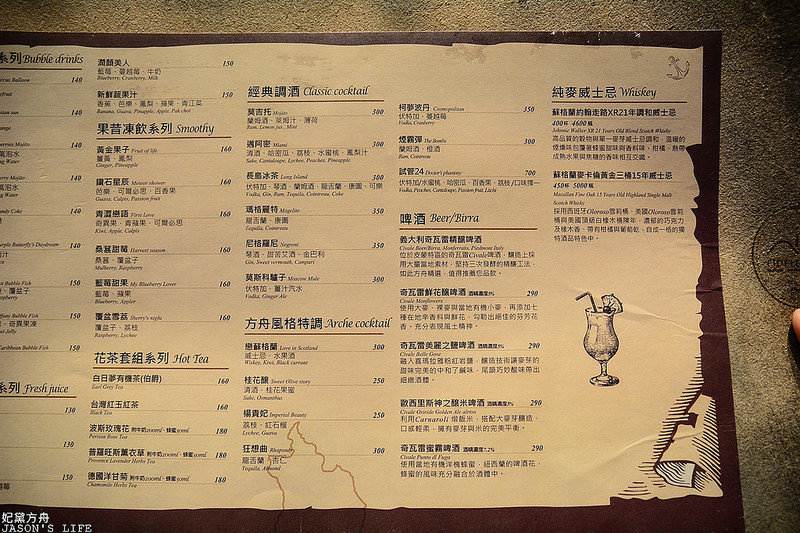 系列 Bubble drinks
140
140
140
140
140
150
150
150
系列 Fresh juice
130
130
150
潤顏美人 150
藍莓、蔓越莓、牛奶
Blueberry, Cranberry, Milk
新鮮蔬果汁 150
香蕉、芭樂、鳳梨、蘋果、青江菜
Banana, Guava, Pineapple, Apple, Pak choi
果昔凍飲系列 Smoothy
黃金果子 Fruit of life 160
薑黃、鳳梨
Ginger, Pineapple
鑽石星辰 Meteor shower 160
芭樂、可爾必思、百香果
Guava, Calpis, Passion fruit
青澀戀語 First Love 160
奇異果、青蘋果、可爾必思
Kiwi, Apple, Calpis
桑葚甜莓 Harvest season 160
桑葚、覆盆子
Mulberry, Raspberry
藍莓甜果 My Blueberry Lover 160
藍莓、蘋果
Blueberry, Appler
覆盆雪荔 Sherry's night 160
覆盆子、荔枝
Raspberry, Lychee
花茶套組系列 Hot Tea
白日夢有機茶(伯爵) 160
Earl Grey Tea
台灣紅玉紅茶 160
Black Tea
波斯玫瑰花 附牛奶200ml、蜂蜜30ml 180
Persian Rose Tea
普羅旺斯薰衣草 附牛奶200ml、蜂蜜30ml 180
Provence Lavender Herbs Tea
德國洋甘菊 附牛奶200ml、蜂蜜30ml 180
Chamomile Herbs Tea
經典調酒 Classic cocktail
莫吉托 Mojito 300
蘭姆酒、萊姆汁、薄荷
Rum, Lemon Jus , Mint
邁阿密 Miami 300
清酒、哈密瓜、荔枝、水蜜桃、鳳梨汁
Sake, Cantaloupe, Lychee, Peaches, Pineapple
長島冰茶 Long Island 300
伏特加、琴酒、蘭姆酒、龍舌蘭、康圖、可樂
Vodka, Gin, Rum, Tequila, Cointreau, Coke
瑪格麗特 Magelite 350
龍舌蘭、康圖
Tequila, Cointreau
尼格羅尼 Negroni 350
琴酒、甜苦艾酒、金巴利
Gin, Sweet vermouth, Campari
莫斯科騾子 Moscow Mule 300
伏特加、薑汁汽水
Vodka, Ginger Ale
方舟風格特調 Arche cocktail
戀蘇格蘭 Love in Scotland 300
威士忌、水果酒
Wiskey, Kiwi, Black currant
桂花釀 Sweet Olive story 250
清酒、桂花果蜜
Sake, Osmanthus
楊貴妃 Imperial Beauty 250
荔枝、紅石榴
Lychee, Guava
狂想曲 Rhapsody 300
龍舌蘭、杏仁
Tequila, Almond
柯夢波丹 Cosmopolitan 350
伏特加、蔓越莓
Vodka, Cranberry
煙霧彈 The Bombs 300
蘭姆酒、橙酒
Rum, Cointreau
試管24 Doctor's phantasy 700
伏特加/水蜜桃、哈密瓜、百香果、荔枝/口味擇一
Vodka/Peach, Cantaloupe, Passion fruit, Lichi
啤酒 Beer/Birra
義大利奇瓦雷精釀啤酒
Civale Beer/Birra, Monferrato, Piedmont Italy
位於皮蒙特區的奇瓦雷Civale啤酒，釀造上採
用大量當地素材，堅持三次發酵的精釀工法，
如此方舟精選，值得推薦您品飲。
奇瓦雷鮮花釀啤酒 酒精濃度5% 290
Civale Monflowers
使用大麥、裸麥與當地有機小麥，再添加七
種在地辛香料與鮮花，勾勒出絕佳的芬芳花
香，充分表現風土精神。
奇瓦雷美麗之鹽啤酒 酒精濃度9% 290
Civale Bella Gose
融入喜瑪拉雅粉紅岩鹽，釀造技術讓麥芽的
甜味完美的中和了鹹味，尾韻巧妙酸味帶出
細緻酒體。
歐西里斯神之釀米啤酒 酒精濃度5% 290
Civale Osiride Golden Ale alriso
利用Carnaroli 燉飯米，搭配大麥芽釀造，
口感輕柔，擁有麥芽與米的完美平衡。
奇瓦雷蜜霧啤酒 酒精濃度7.2% 290
Civale Punto di Fuga
使用當地有機洋槐蜂蜜，紐西蘭的啤酒花，
蜂蜜的風味充分融合於酒體中。
純麥威士忌 Whiskey
蘇格蘭約翰走路XR21年調和威士忌
400杯 4600瓶
Johnnie Walker XR 21 Years Old Blend Scotch Whisky
高品質的穀物與單一麥芽威士忌調和，溫暖的
煙燻味包覆著蜂蜜甜味與香料味，柑橘、熱帶
成熟水果與焦糖的香味相互交織。
蘇格蘭麥卡倫黃金三桶15年威士忌
450杯 5000瓶
Macallan Fine Oak 15 Years Old Highland Single Malt
Scotch Whisky
採用西班牙Oloroso雪莉桶、美國Oloroso雪莉
桶與美國頂級白橡木桶陳年，濃郁的巧克力
及橡木香、帶有柑橘與葡萄乾，自成一格的獨
特酒品特色中。
妃黛方舟
JASON'S LIFE